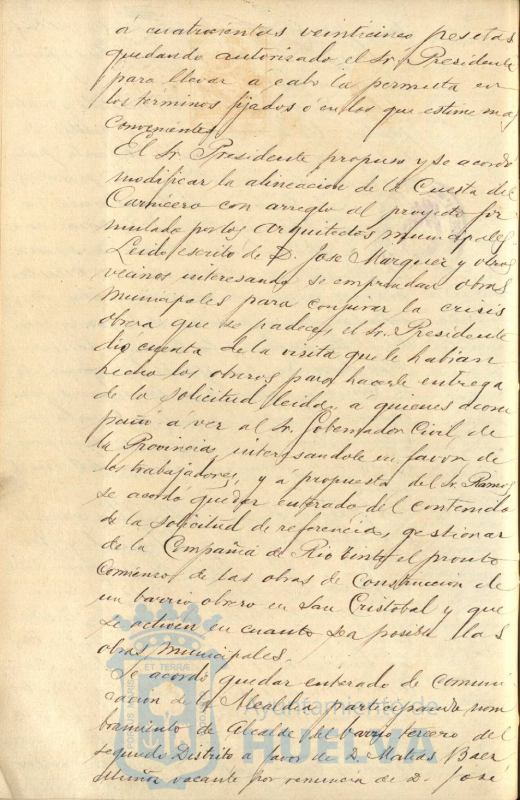 á cuatrocientas veinticinco pesetas
quedando autorizado el Sr. Presidente
para llevar á cabo la permuta en
los términos fijados ó en los que estime mas
convenientes.
El Sr. Presidente propuso y se acordó
modificar la alineacion de la Cuesta del
Carnicero con arreglo al proyecto for
mulado por los arquitectos municipales.
Leido escrito de D. José Marquez y otros
vecinos interesando se emprendan obras
municipales para conjurar la crisis
obrera que se padece, el Sr. Presidente
dió cuenta de la visita que le habian
hecho los obreros para hacerle entrega
de la solicitud leida, á quienes acom
pañó á ver al Sr. Gobernador Civil de
la Provincia, interesandole en favor de
los trabajadores, y á propuesta del Sr. Ramos
se acordó quedar enterado del contenido
de la solicitud de referencia, gestionar
de la Compañia de Rio Tinto el pronto
comienzo de las obras de construccion de
un barrio obrero en San Cristobal y que
se activen en cuanto sea posible las
obras municipales.
Se acordó quedar enterado de comuni
cacion de la Alcaldia participando nom
bramiento de Alcalde del barrio tercero del
segundo Distrito a favor de D. Matias Baez
vacante por renuncia de D. José
PORTUS MARIS ET TERRAE CUSTODIA
ayuntamiento de
HUELVA